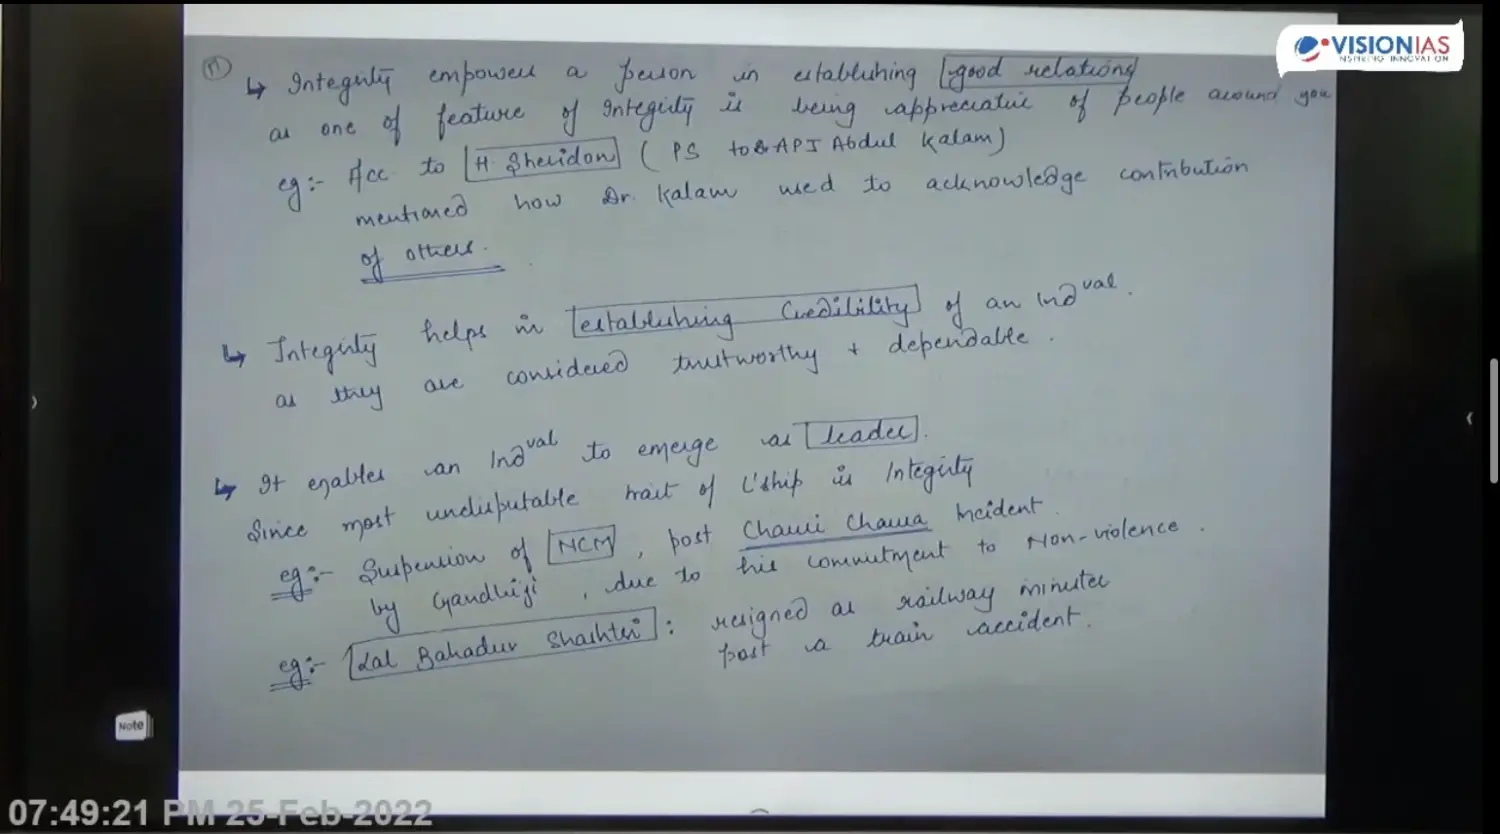 VISIONIAS
INSPIRING INNOVATION
11
↳ Integrity empowers a person in establishing good relations
as one of feature of Integrity is being appreciative of people around you
eg:- Acc to H. Sheridon ( PS to API Abdul Kalam)
mentioned how Dr. Kalam used to acknowledge contribution
of others.
↳ Integrity helps in establishing Credibility of an Indval.
as they are considered trustworthy + dependable.
↳ It enables an Indval to emerge as leader.
Since most undisputable trait of L'ship is Integrity
eg:- Suspension of NCM, post Chauri Chaura Incident.
by Gandhiji, due to his commitment to Non-violence.
eg:- Lal Bahadur Shashtri: resigned as railway minister
post a train accident.
Note
07:49:21 PM 25-Feb-2022